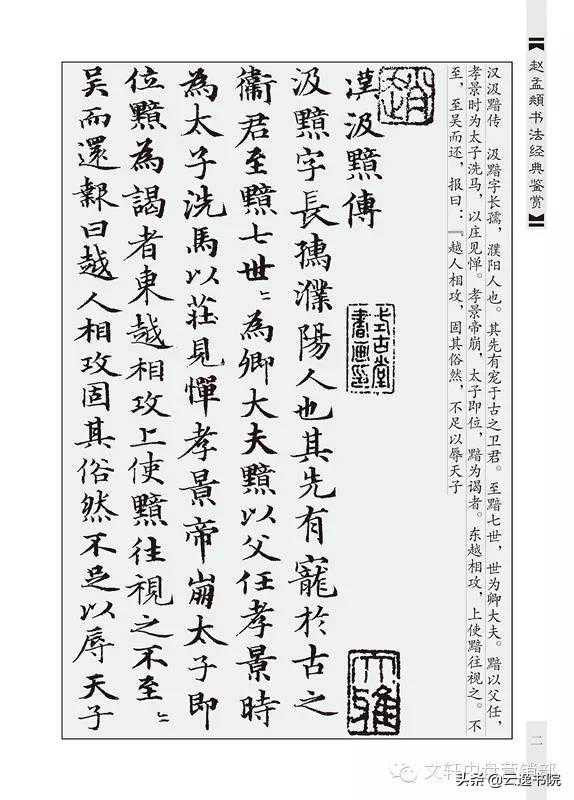 赵孟頫书法经典鉴赏
汉汲黯传　汲黯字长孺，濮阳人也。其先有宠于古之卫君。至黯七世，世为卿大夫。黯以父任，
孝景时为太子洗马，以庄见惮。孝景帝崩，太子即位，黯为谒者。东越相攻，上使黯往视之。不
至，至吴而还，报曰：『越人相攻，固其俗然，不足以辱天子
趙
式古堂
書畫印
大雅
漢汲黯傳
汲黯字長孺濮陽人也其先有寵於古之
衛君至黯七世〻為卿大夫黯以父任孝景時
為太子洗馬以莊見憚孝景帝崩太子即
位黯為謁者東越相攻上使黯往視之不至〻
吳而還報曰越人相攻固其俗然不足以辱天子
二
文轩中盘营销部
头条 @云逸书院